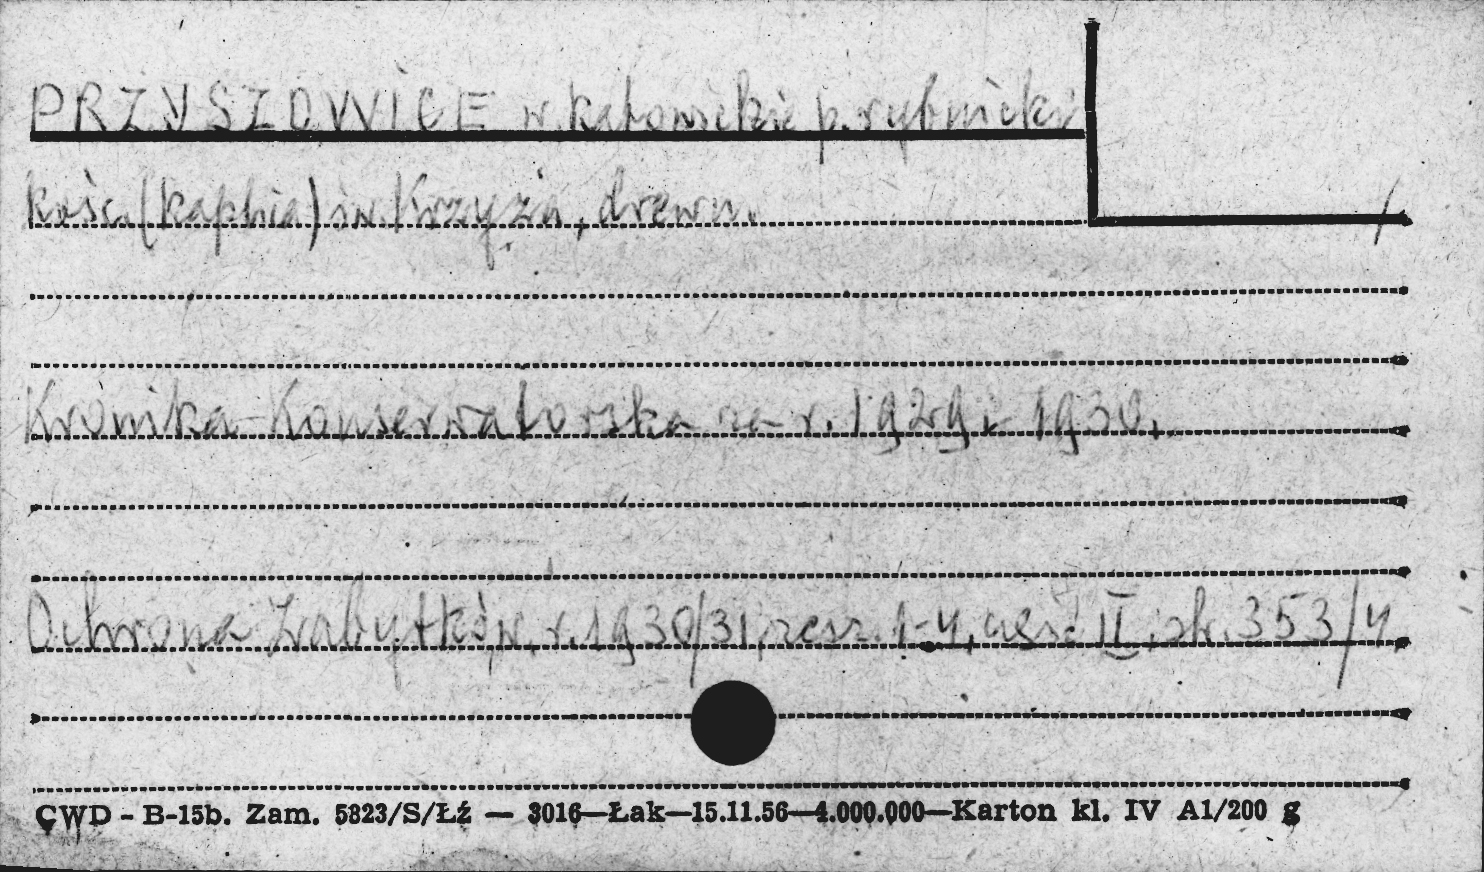 PRZYSZOWICE w. katowickie p. rybnicki
kośc. (kaplica) św. Krzyża, drewn.
Kronika Konserwatorska za r. 1929 i 1930.
Ochrona Zabytków, r. 1930/31, zesz. 1-4, część II, str. 353/4,
CWD - B-15b. Zam. 5823/S/Łź — 3016—Łak—15.11.56—4.000.000—Karton kl. IV A1/200 g